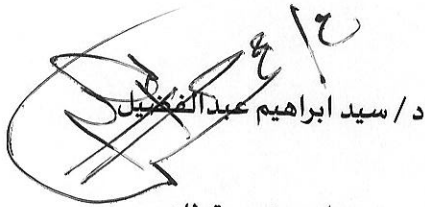 د/ سيد ابراهيم عبدالفضيل